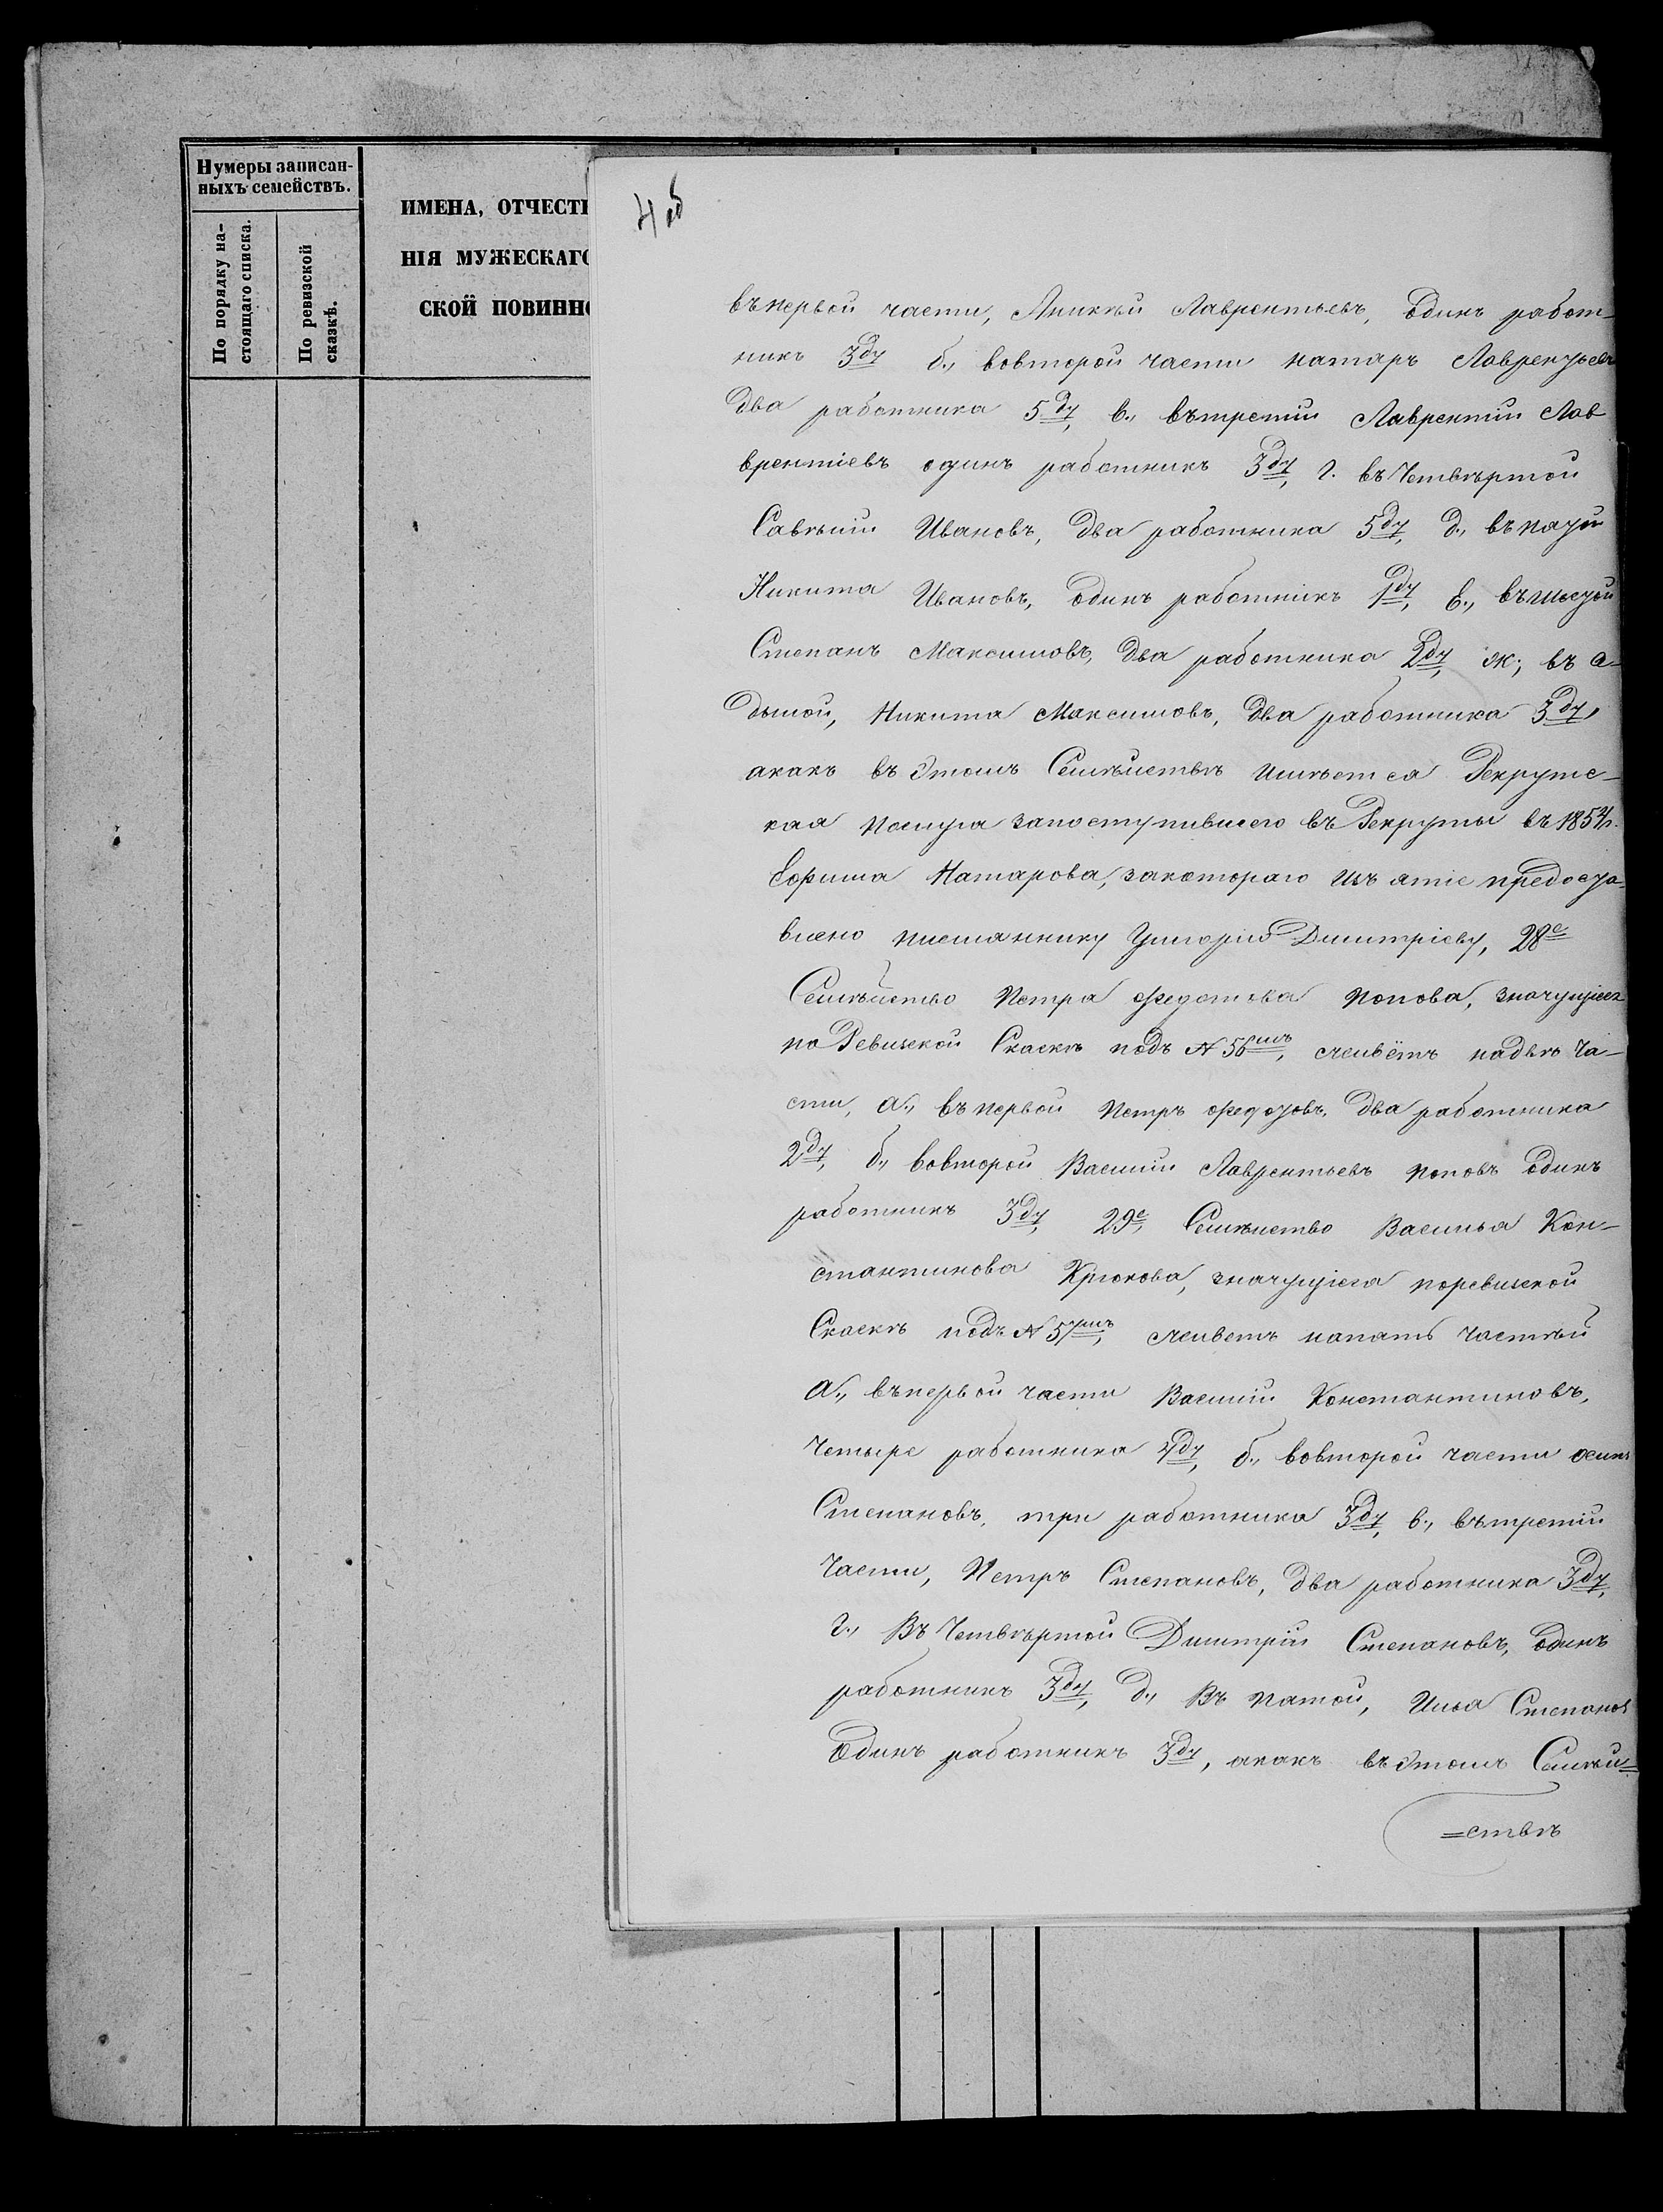 Нумеры записан-
ныхъ семействъ.
По порядку на-
стоящаго списка.
По ревизской
сказкѣ.
ИМЕНА, ОТЧЕСТВ
НІЯ МУЖЕСКАГО
СКОЙ ПОВИННО
4об
въ первой части, Аникѣй Лаврентьевъ, одинъ работ-
никъ 3ду б., вовторой части Натаръ Лаврентьевъ
два работника 5ду, в., вътретіи Лаврентіи Лав
врентіевъ одинъ работникъ 3ду, г. въ Четвѣртой
Савѣлій Ивановъ, два работника 5ду, д., въ пятой
Никита Ивановъ, одинъ работникъ 1ду, е., въ шестой
Степанъ Максимовъ, два работника 2ду, ж; въ се-
дьмой, Никита Максимовъ, два работника 3ду,
акакъ въ этомъ Семѣйствѣ имѣется Рекрутс-
кая послуга запоступившего въ Рекруты въ 1854г.
Ефима Натарова, закотораго изъятіе предоста-
влено племяннику Григорію Дмитріеву, 28е
Семѣйство Петра Федотова Попова, значущіеся
по Ревизской Скаскѣ подъ N 56мъ, слывётъ надвѣ ча-
сти, а., въ первой Петръ Федотовъ, два работника
2ду, б., вовторой Василій Лаврентьевъ Поповъ одинъ
работникъ 3ду, 29е, Семѣйство Василья Кон-
стантинова Крюкова, значущіеся поревизской
Скаскѣ подъ N 57мъ, слыветъ напять частѣй
а., въ первой части Василій Константиновъ,
Четыре работника 4ду, б., вовторой части осипъ
Степановъ, три работника 3ду, в., вътретіи
Части, Петръ Степановъ, два работника 3ду,
г., Въ Четвѣртой Дмитрій Степановъ, одинъ
работникъ 3ду, д., Въ пятой, Илья Степановъ
Одинъ работникъ 3ду, акакъ въ этомъ Семѣй=
=ствѣ